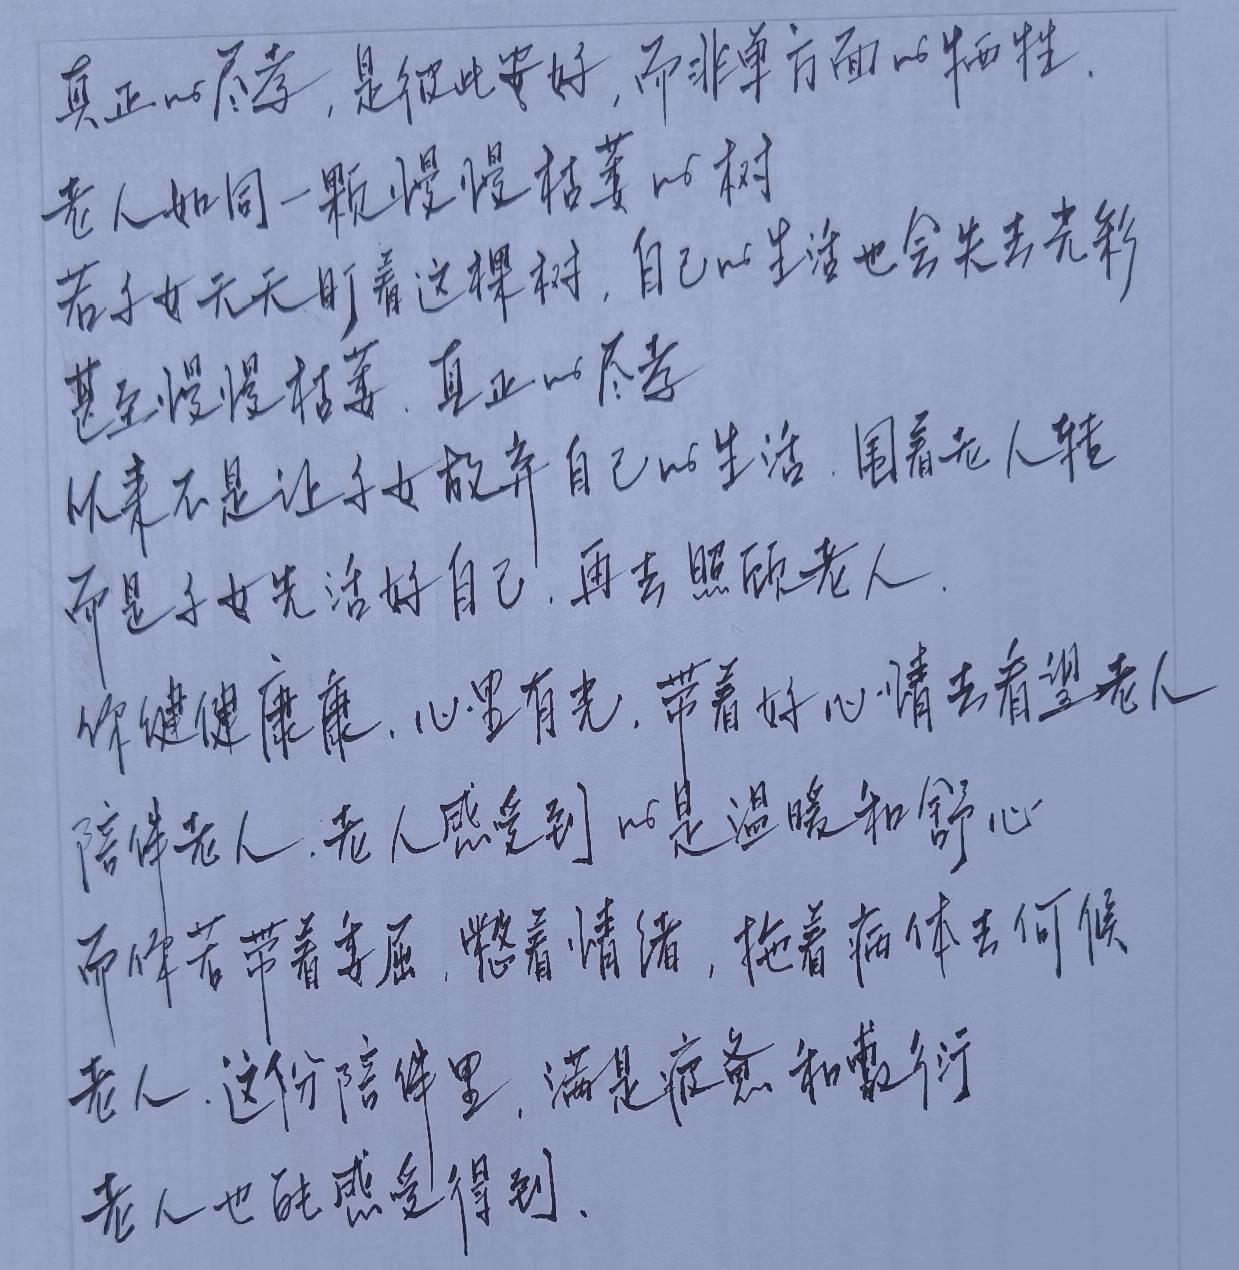 真正的尽孝，是彼此安好，而非单方面的牺牲.
老人如同一颗慢慢枯萎的树
若子女天天盯着这棵树，自己的生活也会失去光彩
甚至慢慢枯萎.真正的尽孝
从来不是让子女放弃自己的生活.围着老人转
而是子女先活好自己.再去照顾老人.
你健健康康.心里有光.带着好心情去看望老人
陪伴老人.老人感受到的是温暖和舒心
而你若带着委屈，憋着情绪，拖着病体去伺候
老人.这份陪伴里，满是疲惫和敷衍
老人也能感受得到.